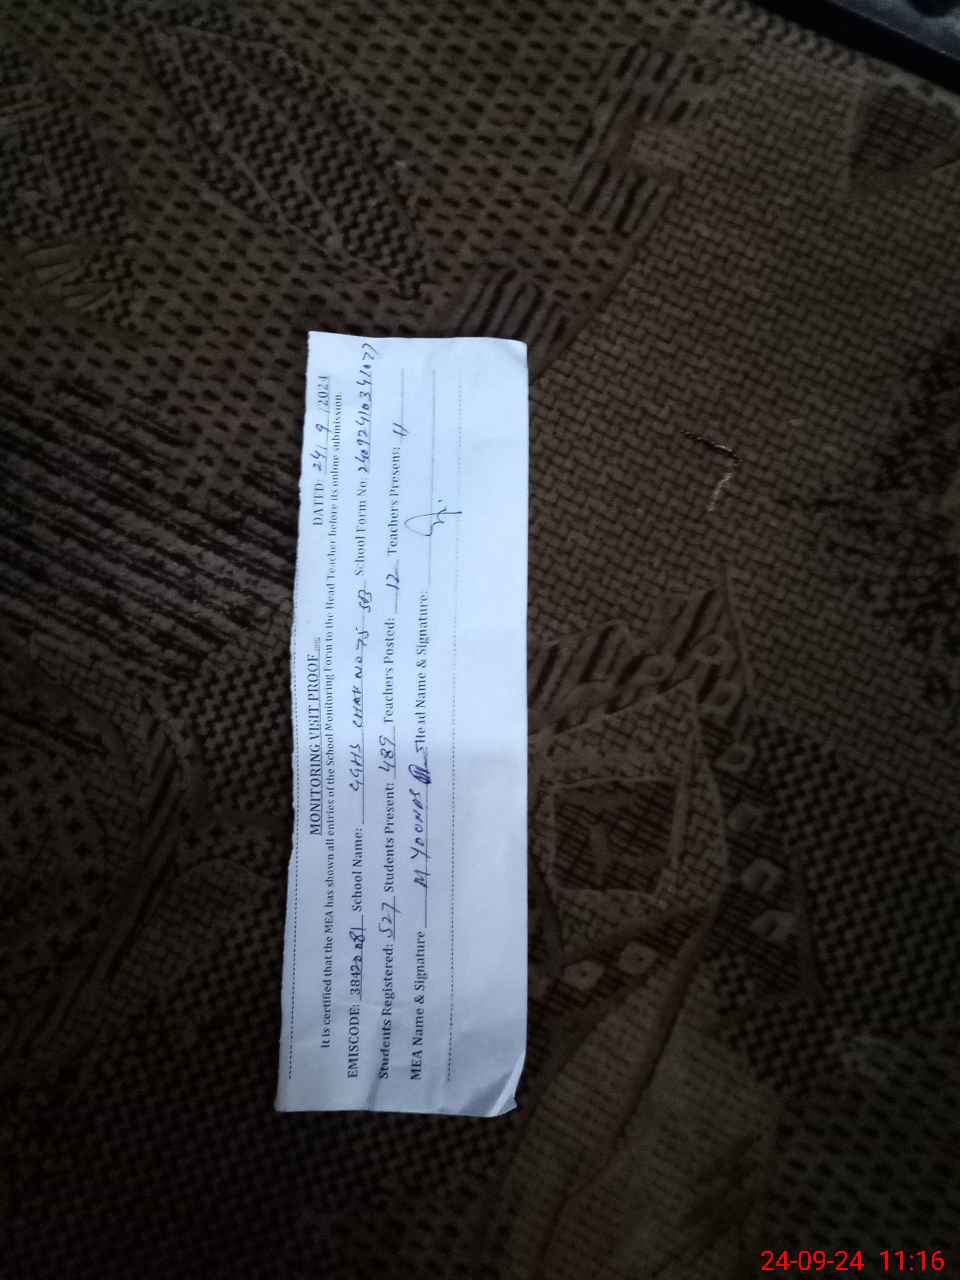 MONITORING VISIT PROOF
DATED: 24/ 9 /2024
It is certified that the MEA has shown all entries of the School Monitoring Form to the Head Teacher before its online submission.
EMISCODE: 38420081 School Name: GGHS CHAK NO 75 SB School Form No:
Students Registered: 527 Students Present: 489 Teachers Posted: 12 Teachers Present: 11
MEA Name & Signature M YOUNAS Head Name & Signature:
24-09-24 11:16